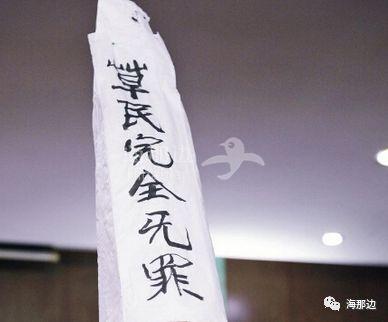 草民完全无罪
海那边